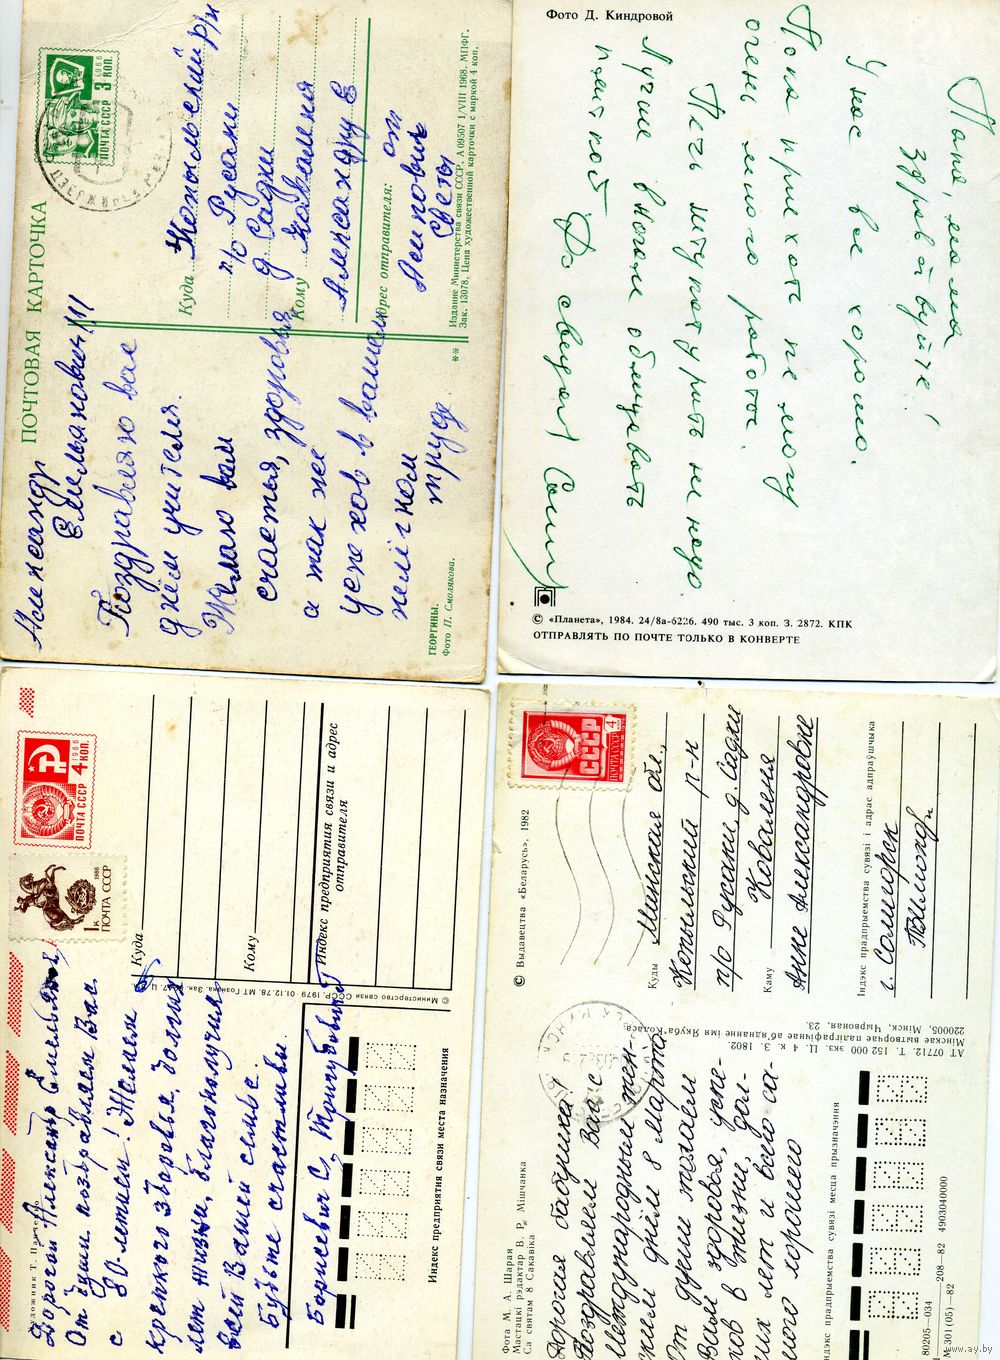 ПОЧТОВАЯ КАРТОЧКА
Александр
Емельянович!!!
Поздравляю вас
днём учителя.
Желаю вам
счастья, здоровья,
а так же
успехов в вашем
нелёгком
труде.
ПОЧТА СССР
1966
3 КОП.
Куда
Копыльский р/н
п/о Русаки
д. Садки
Кому
Александру Е
Адрес отправителя:
от
Светы
Издание Министерства связи СССР. А 09507 1/VIII 1968. МПФГ.
Зак. 13078. Цена художественной карточки с маркой 4 коп.
**
ГЕОРГИНЫ.
Фото П. Смолякова.
Фото Д. Киндровой
Папа, мама
Здравствуйте!
У нас все хорошо.
Пока приехать не могу
очень много работы.
Печь штукатурить не надо.
Лучше вногом облицевать
плиткой
До свидания
© «Планета», 1984. 24/8а-6226. 490 тыс. 3 коп. З. 2872. КПК
ОТПРАВЛЯТЬ ПО ПОЧТЕ ТОЛЬКО В КОНВЕРТЕ
ПОЧТА СССР
1966
4 КОП.
1к
ПОЧТА СССР
1988
Дорогой Александр Емельянович,
От души поздравляем Вас
с 80-летием! Желаем
крепкого здоровья, долгих
лет жизни, благополучия
всей Вашей семье.
Будьте счастливы.
Борисевич С, Тригубович
Куда
Кому
Индекс предприятия связи и адрес
отправителя
© Министерство связи СССР, 1979
01.12.78. МТ Гознака. Зак.
Индекс предприятия связи места назначения
СССР
ПОЧТА СССР
4 коп
© Выдавецтва «Беларусь», 1982
Куды
Минская обл.,
Копыльский р-н
п/о Русаки, д. Садки
Каму
Коваленя
Анне Александровне
Індэкс прадпрыемства сувязі і адрас адпраўшчыка
г. Солигорск
АТ 07712. Т. 152 000 экз. Ц. 4 к. З. 1802.
Мінскае вытворчае паліграфічнае аб'яднанне імя Якуба Коласа.
220005, Мінск, Чырвоная, 23.
Дорогая бабушка!
Поздравляем Вас с
Международным жен-
ским днём 8 марта.
От души желаем
Вам здоровья, успе-
хов в жизни, дол-
гих лет и всего са-
мого хорошего
Фота М. А. Шарая
Мастацкі рэдактар В. Р. Мішчанка
Са святам 8 Сакавіка
Індэкс прадпрыемства сувязі месца прызначэння
80205—034
208—82 4903040000
М 301(05)—82
www.ay.by